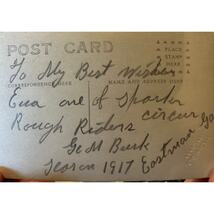 POST CARD
PLACE
STAMP
HERE
To My Best Wishes
CORRESPONDENCE HERE
NAME AND ADDRESS HERE
Eua one of Sparks
circus
Rough Riders
Geo M Burk
Season 1917 Eastman Ga